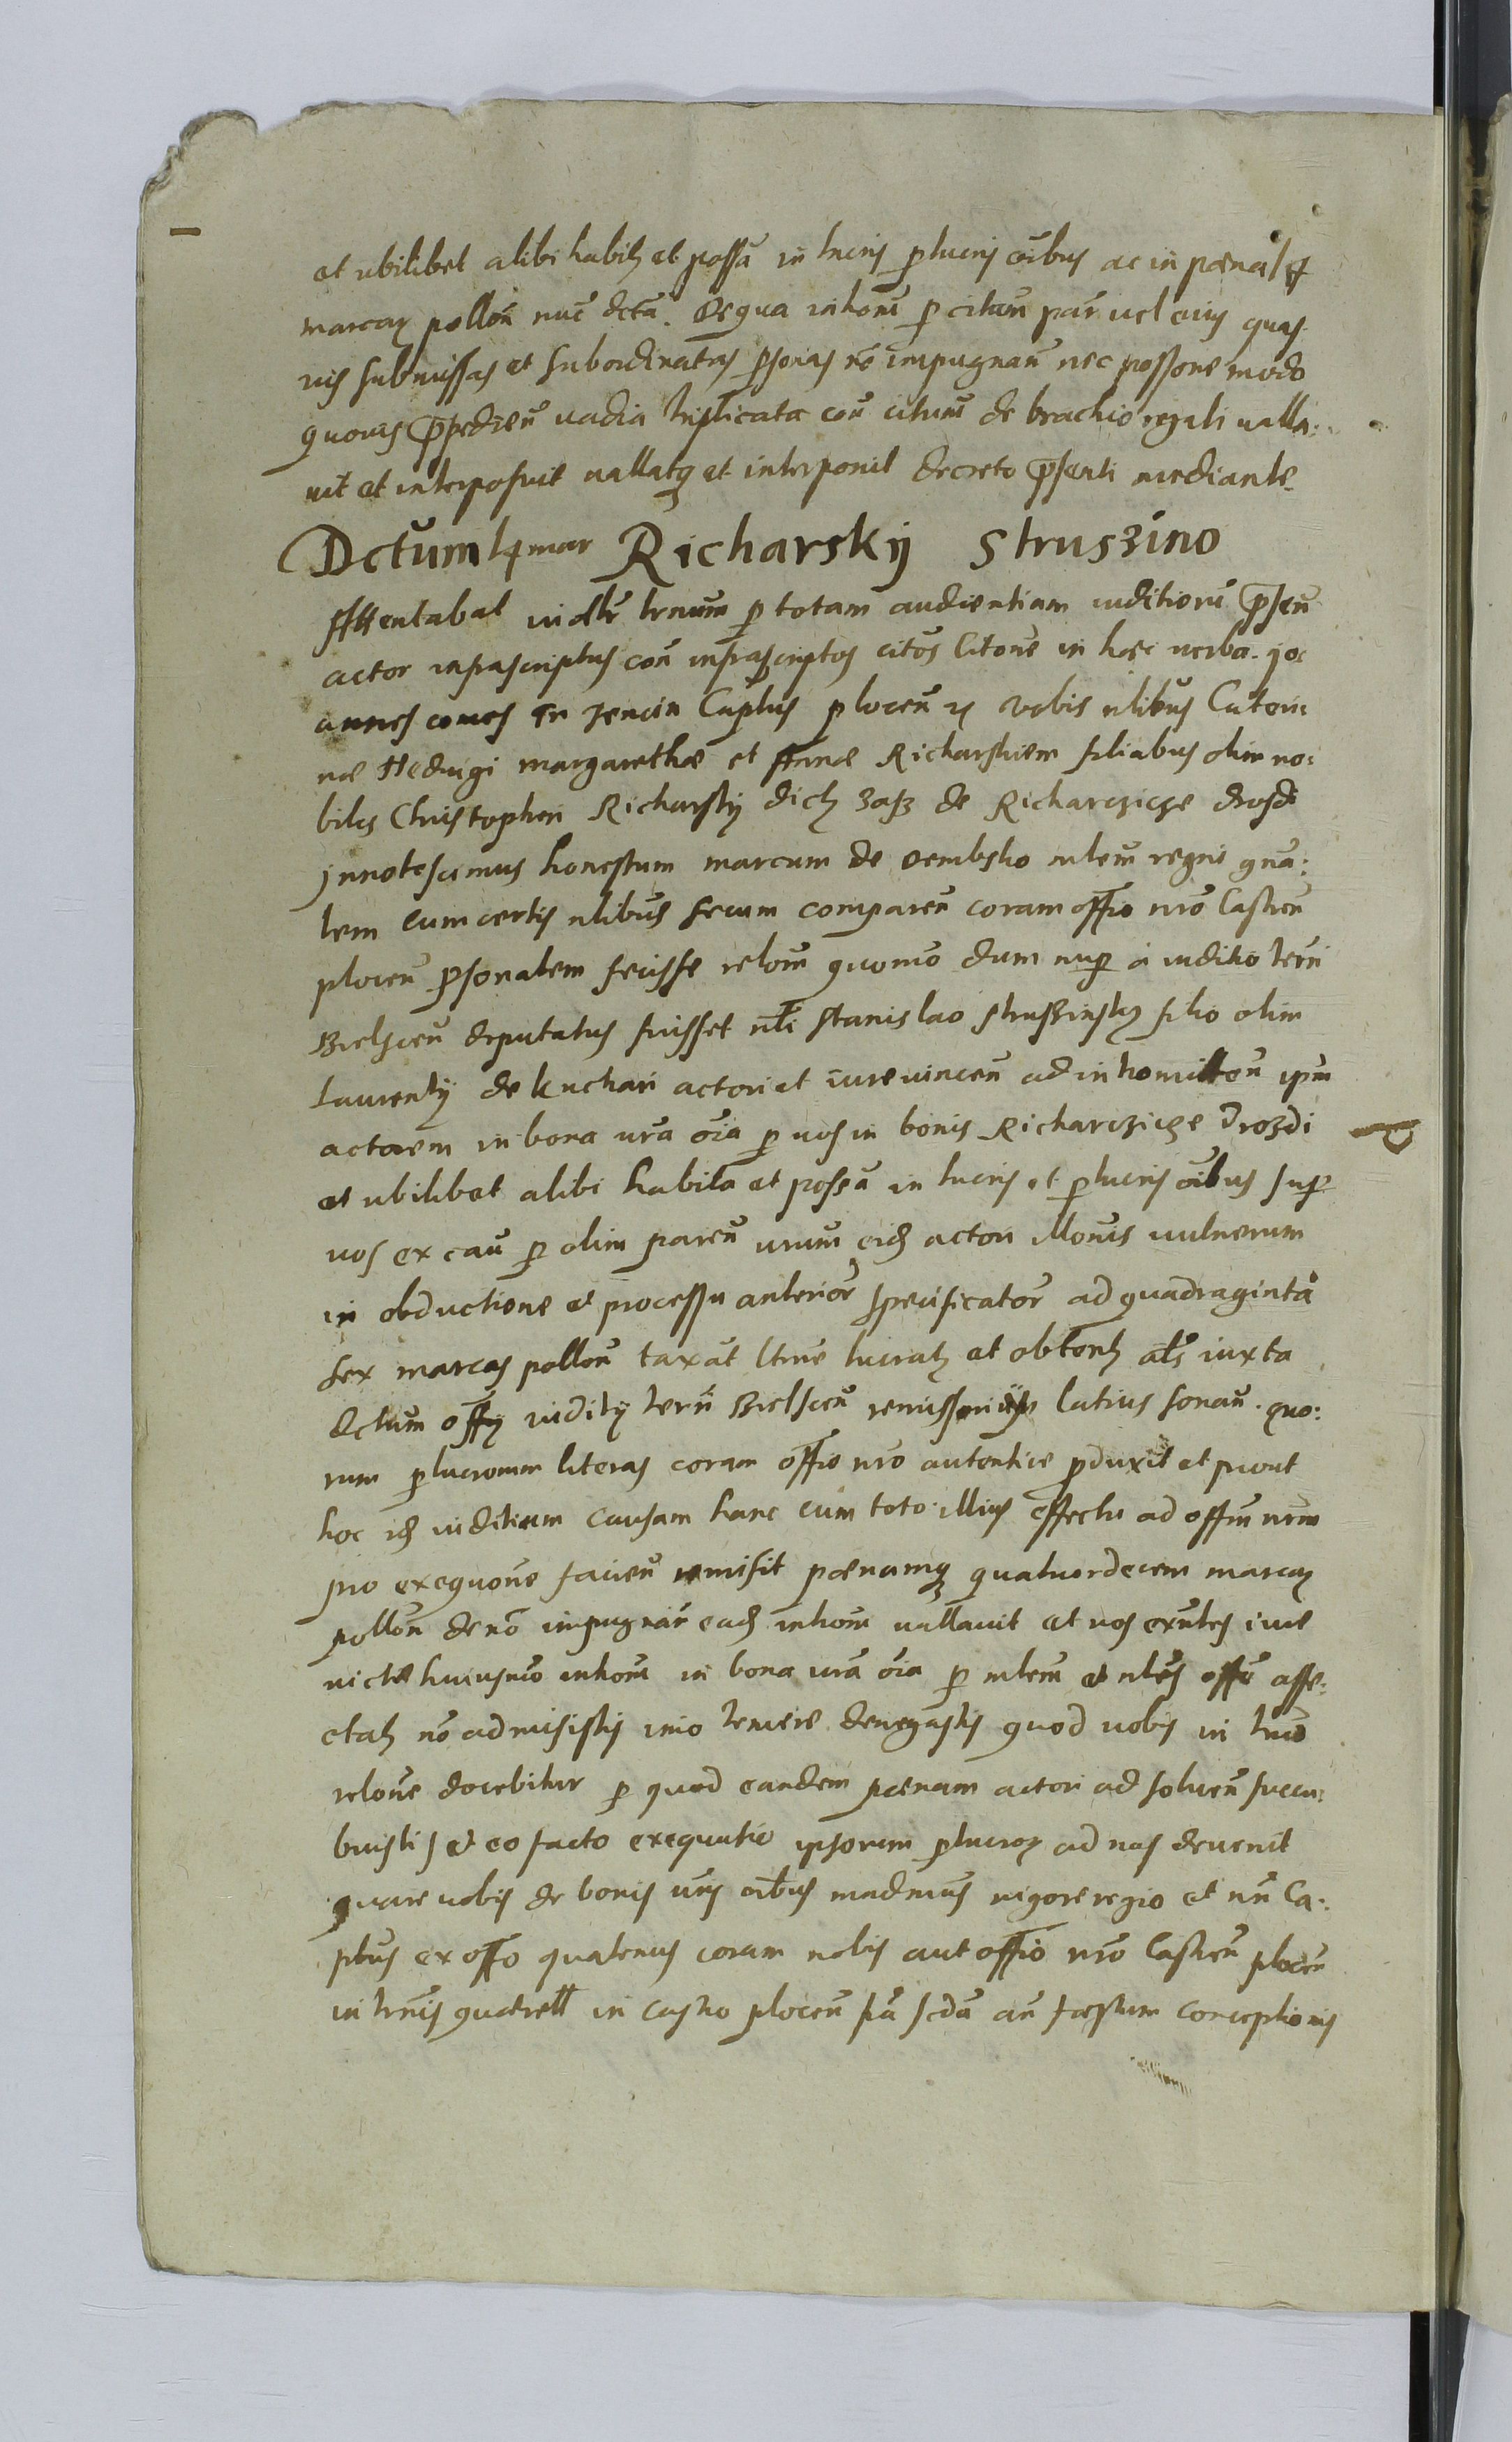 et ubilibet alibi habitꝫ et possā in lucris ꝑlucris oībus ac in pœna 14
marcaꝝ pollōn nūc dctā. De qua intrōni ꝑ citām pār vel eius quas
vis submissas et subordinatas ꝑsonas nō impugnan̄ nec possone modo
quovis p̄pedien̄ vadia triplicata con̄ citum̄ de brachio regali valla:
vit et interposuit vallatqꝫ et interponit decreto p̄senti mediante
Dctum 14 mar Richarskij Strusʒino
Attentabat iudlr̄ trnum̄ ꝑ totam audientiam iuditiorū p̄sen̄
actor infrascriptus con̄ infrascriptos citōs litone in hæc verba. Jo:
annes comes in Cāptus plocen̄ vobis nlibus Cateri:
næ Heduigi margarethæ et Annæ Richarskiem filiabus olim no:
bilis Christopheri Richarskij dictꝫ de Richarcziczæ drosdi
Innotescimus honestum marcum de Dembsko mlem̄ regni gnā:
lem cum certis nlibus secum comparen̄ coram offio nrō Castren̄
plocen̄ ꝑsonalem fecisse relōm quomō dum nuꝑ a iuditio terrn̄
Bielscen̄ deputatus fuisset nli Stanislao Strusʒinskꝫ filio olim
Laurentij de kuchari actori et iurevincen̄ ad intromitten̄ ipm̄
actorem in bona vrā oīa ꝑ vos in bonis Richarcziczæ Droʒdi
et ubilibet alibi habita et possā in lucris et ꝑlucris oībus suꝑ
vos ex cau ꝑ olim paren̄ vrum̄ eidꝫ actori illonis vulnerum
in obductione et processu anterior̄ specificator̄ ad quadraginta
sex marcas pollōn taxāt ltme lucratꝫ et obtentꝫ als̄ iuxta
dctum offij iuditij terrn̄ Bielscen̄ latius sonan̄. quo:
rum ꝑlucrorum literas coram offio nrō autentice ꝓduxit et prout
hoc idꝫ iuditium causam hanc cum toto illius effectu ad offim̄ nrm̄
pro exequone facien̄ remisit pœnamqꝫ quatuordecem marcaꝝ
pollōn de nō impugnan̄ eadꝫ introni vallavit et vos exntes iure
victæ huiusmō introni in bona vrā oīa ꝑ mlem̄ et nles̄ offio affe:
ctatꝫ nō admisistis imo temere denegastis quod vobis in trno
relone docebitur ꝑ quod eandem pœnam actori ad solven̄ succu:
buistis et eo facto exequutio ipsorum ꝑlucroꝝ ad nos devenit
quare vobis de bonis vris oībus mādmus rigore regio et nrō Ca:
ptus ex offo quatenus coram nobis aut offio nrō Castren̄ plocen̄
in trnis querell in castro plocen̄ fā scdā an̄ fæstum conceptionis